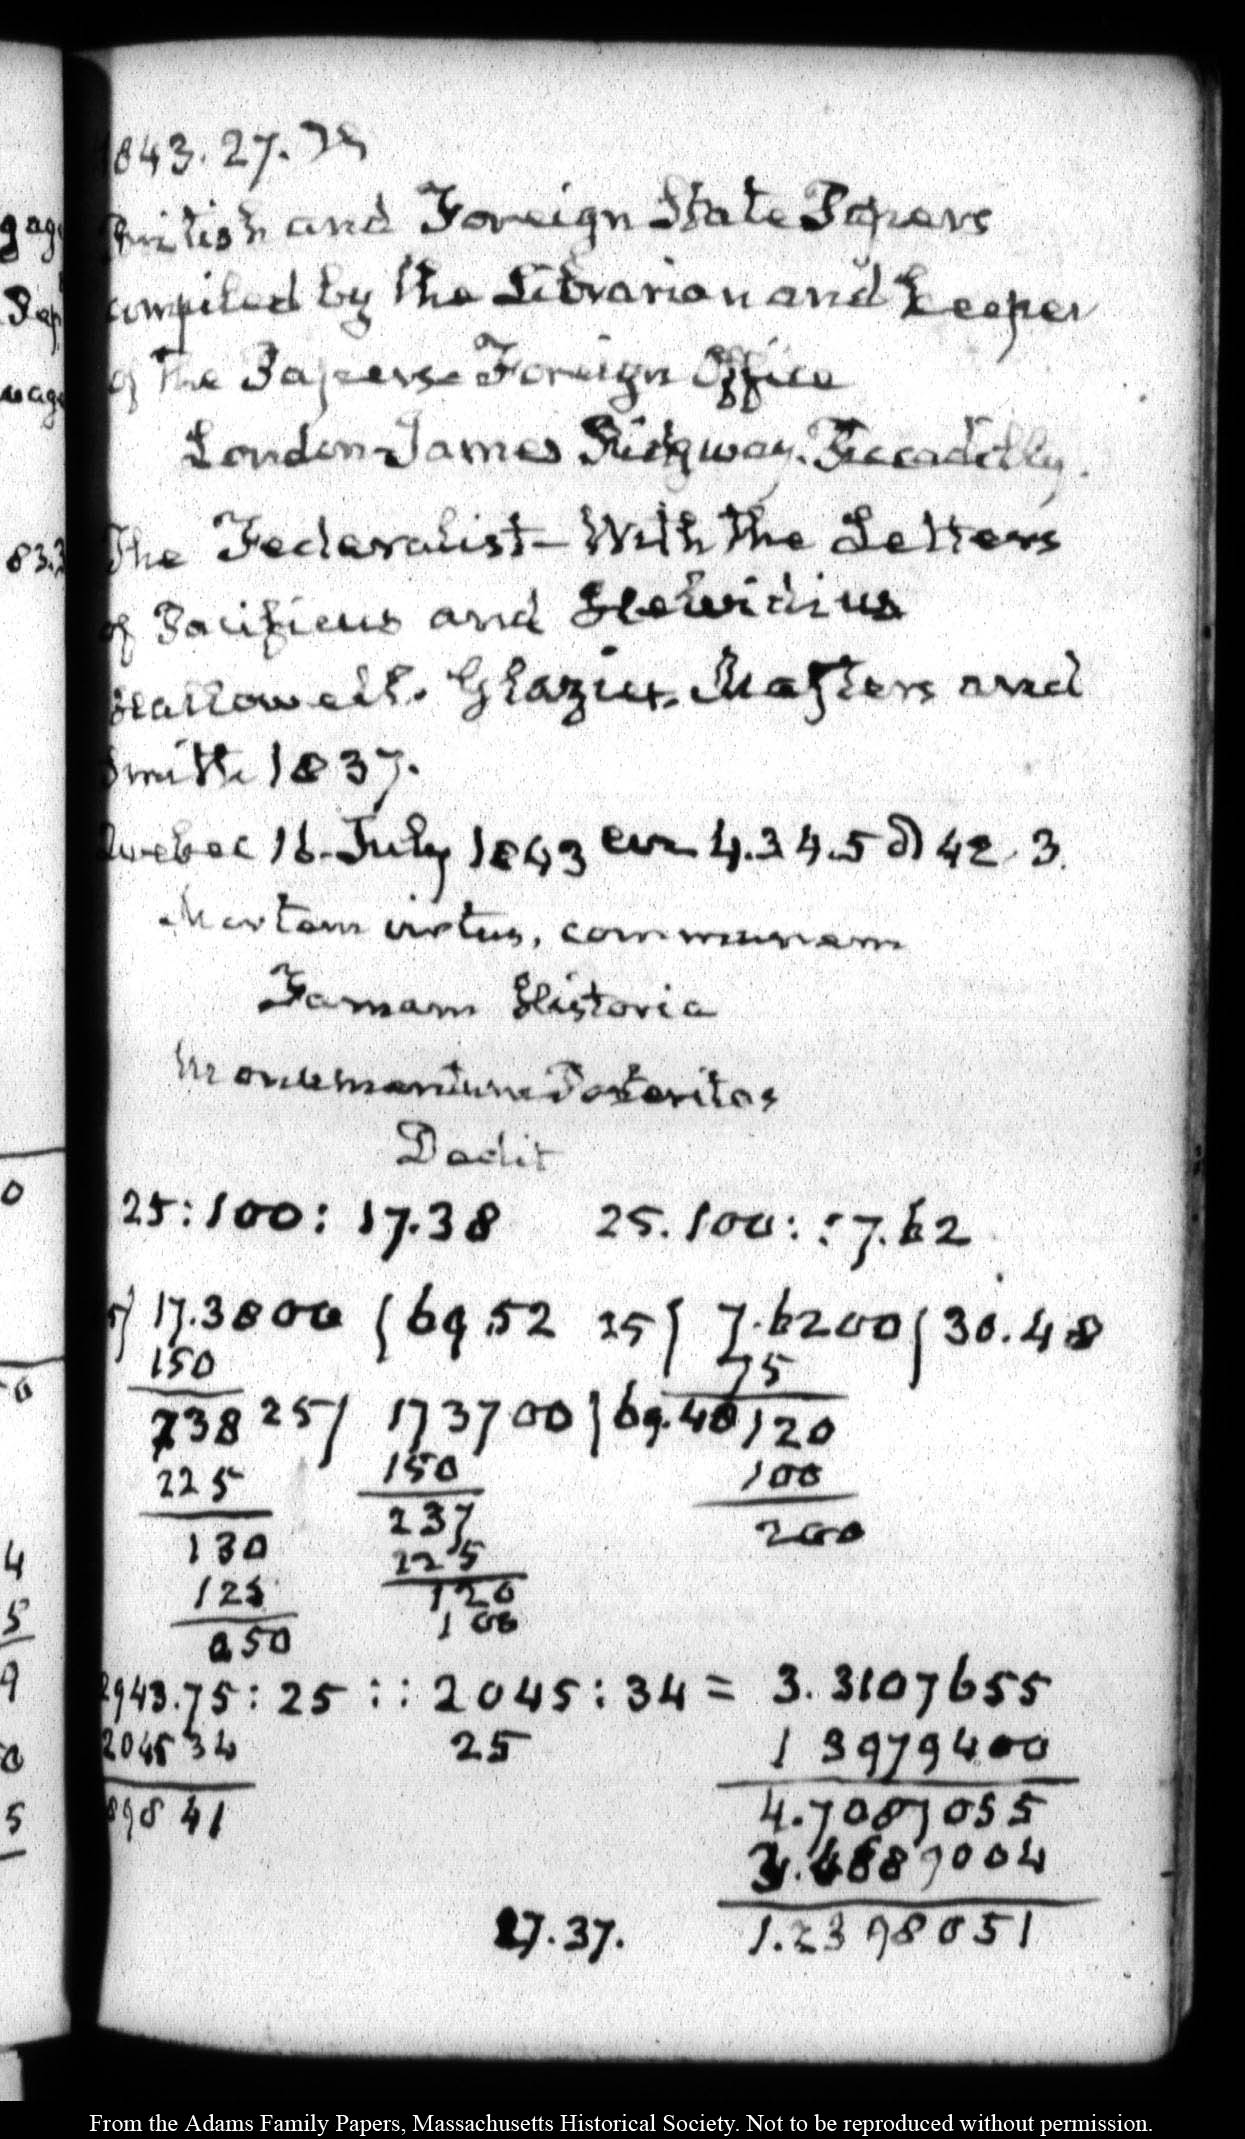 1843. 27.
British and Foreign State Papers
compiled by the Librarian and Keeper
of the Papers Foreign Office
London James Ridgway. Piccadilly.
The Federalist - With the Letters
of Pacificus and Helvidius
Hallowell. Glazier. Masters and
Smith 1837.
Quebec 16. July 1843 4.3 4.5 42. 3.
Mortem virtus, communem
Famam Historia
Monumentum Posteritas
Dedit
25:100: 17.38 25.100::7.62
5) 17.3800 (69.52 25) 7.6200 (30.48
150 75
238 25) 173700 (69.48 120
225 150 100
130 237 200
125 225
050 120
100
2943.75:25::2045:34 = 3.3107655
2045 34 25 1 3979400
898 41 4.7087055
3.4689004
17.37. 1.2398051
gag
Pap
uag
833
0
0
4
5
9
0
5
From the Adams Family Papers, Massachusetts Historical Society. Not to be reproduced without permission.